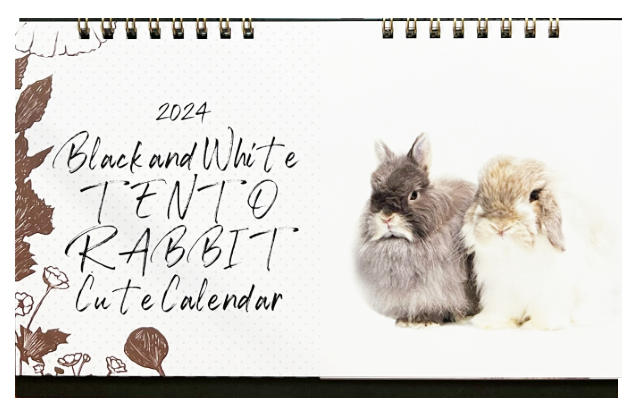 2024
Black and White
TENTO
RABBIT
Cute Calendar